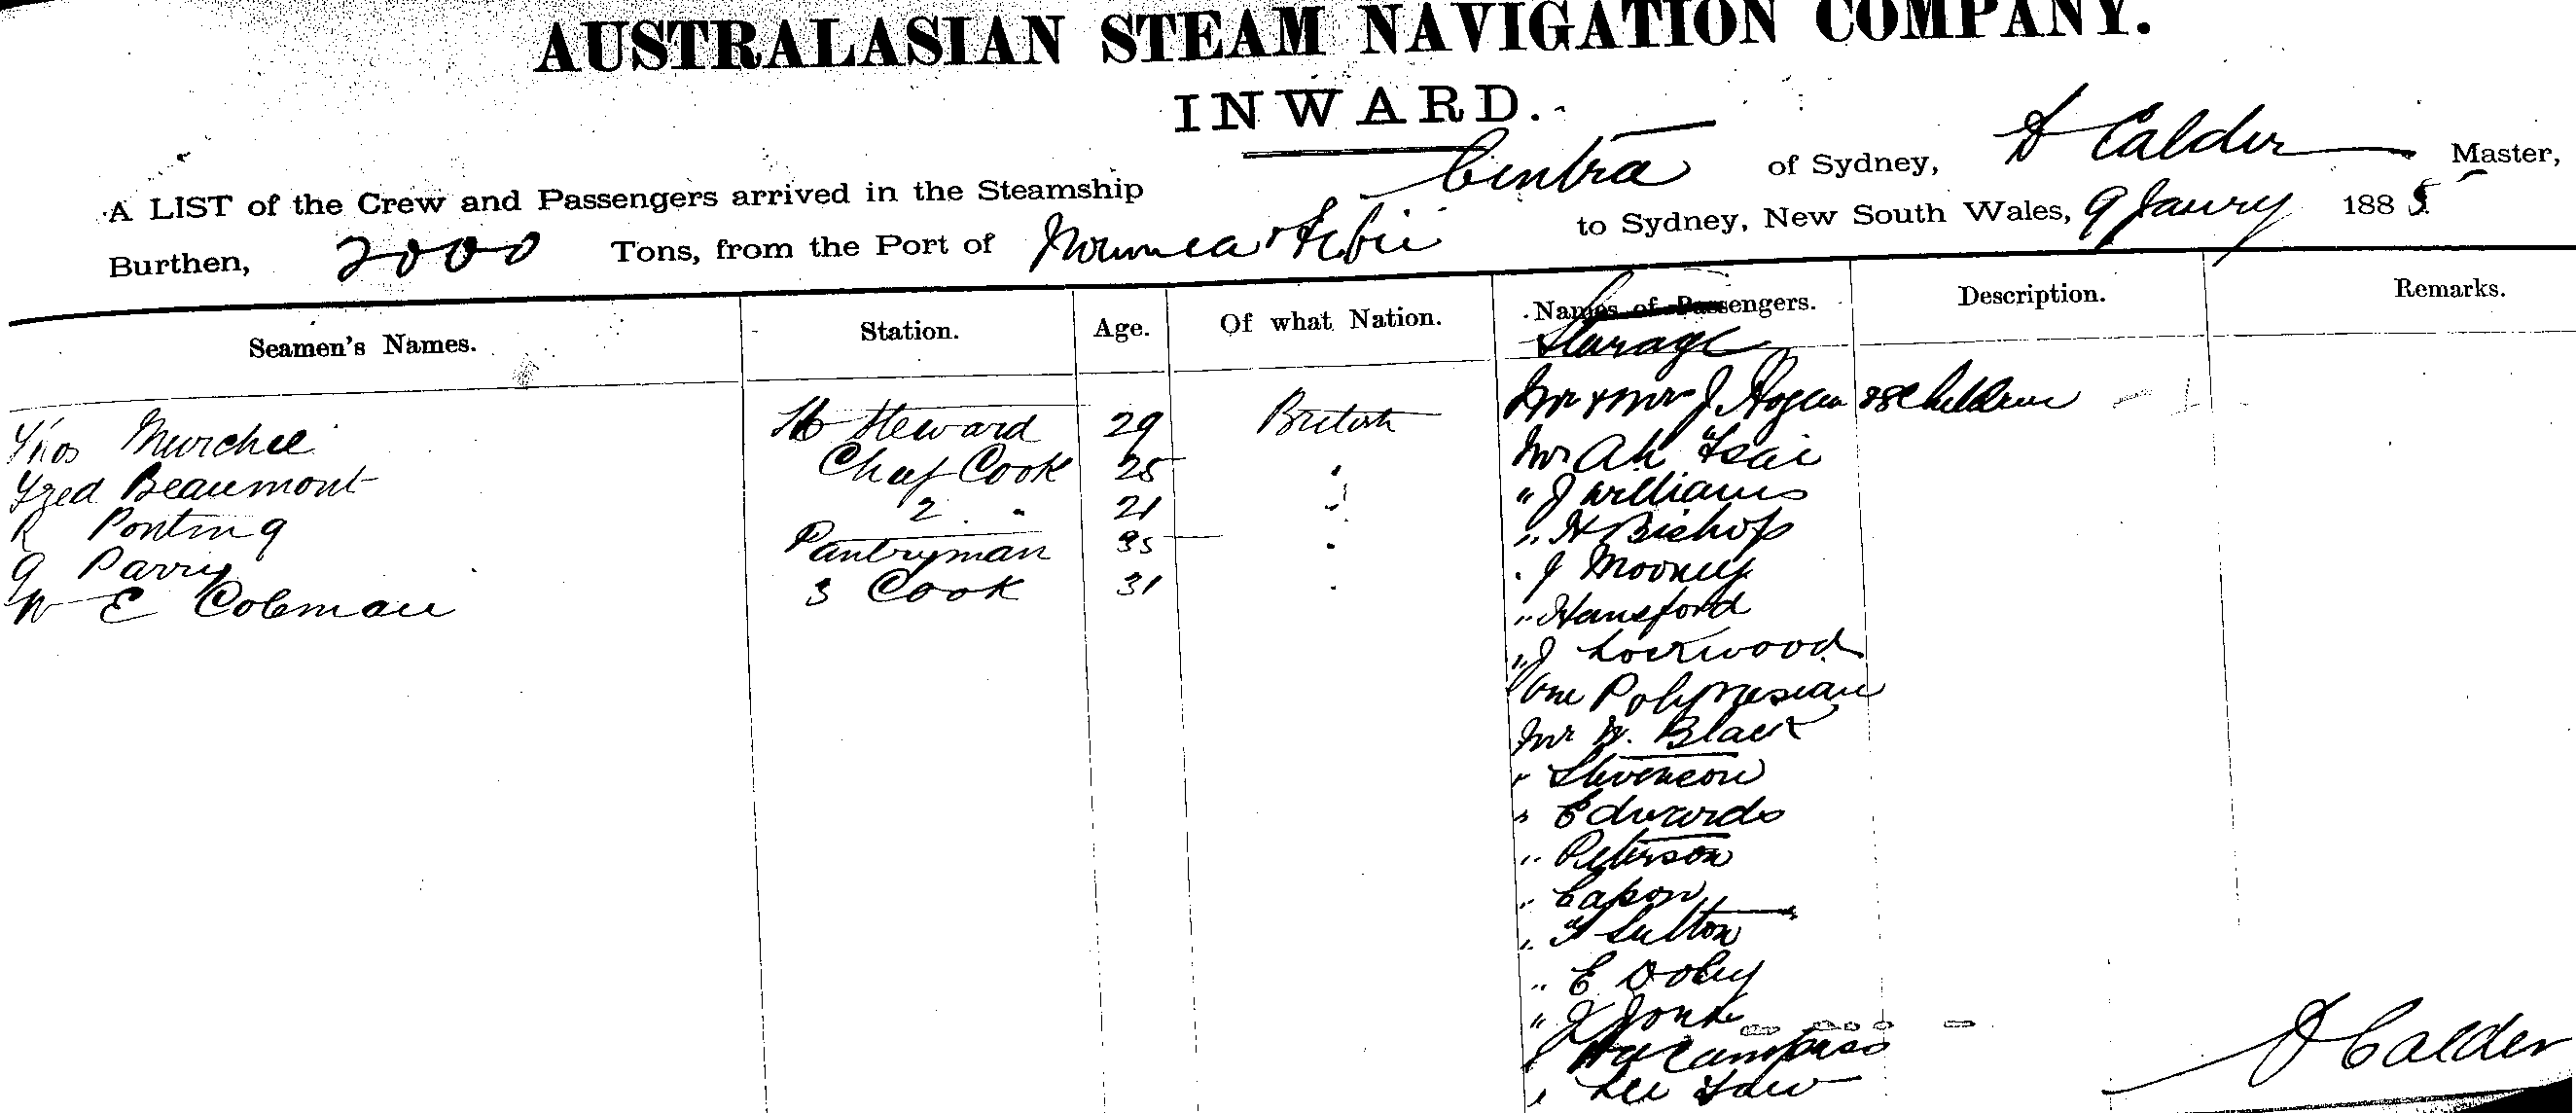 AUSTRALASIAN STEAM NAVIGATION COMPANY.
INWARD.
A LIST of the Crew and Passengers arrived in the Steamship Cintra of Sydney, D Calder Master,
Burthen, 2000 Tons, from the Port of Noumea & Fiji to Sydney, New South Wales, 9 Janry 1885
Seamen's Names. Station. Age. Of what Nation. Names of Passengers. Description. Remarks.
Thos Murchie Steward 29 British Mr & Mrs J. Hogan children
Fred Beaumont Chief Cook 25 " Mr Ah
R Ponting 2 " 21 " " J Williams
G Parry Pantryman 35 " " H Bishop
W E Coleman 3 Cook 31 " " J Mooney
" Hansford
" J Lockwood
One Polynesian
Mr W. Black
" Stevenson
" Edwards
" Peterson
" Capon
" F Sutton
" E Doley
" J
"
" Lee
D Calder